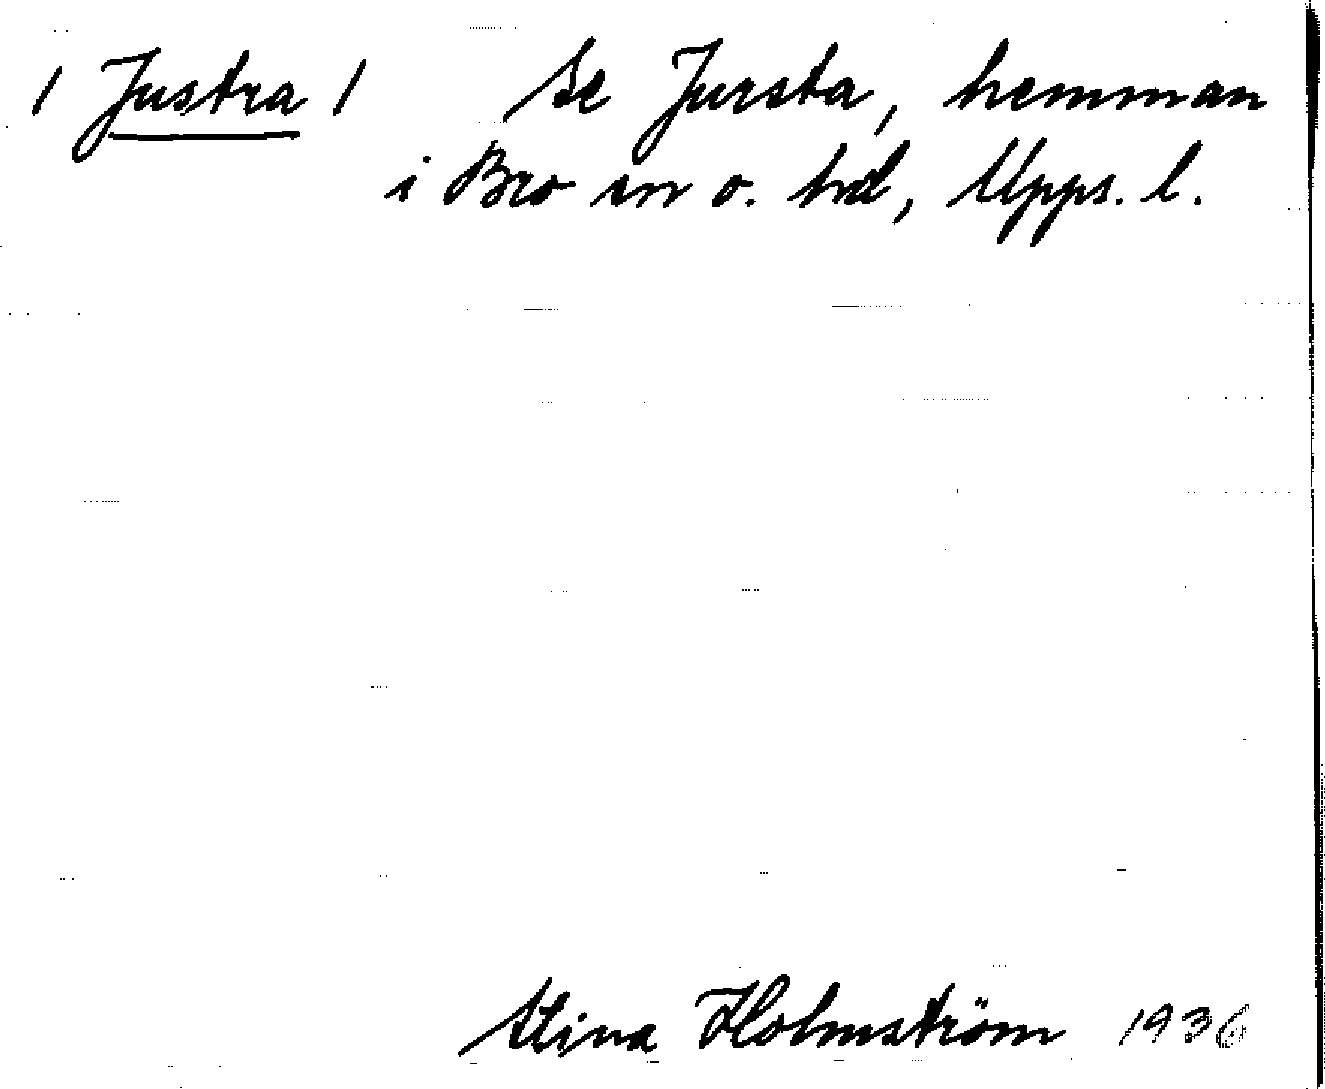 / Justra / Se Jursta, hemman
i Bro sn o. hd, Upps. l.
Stina Holmström 1936